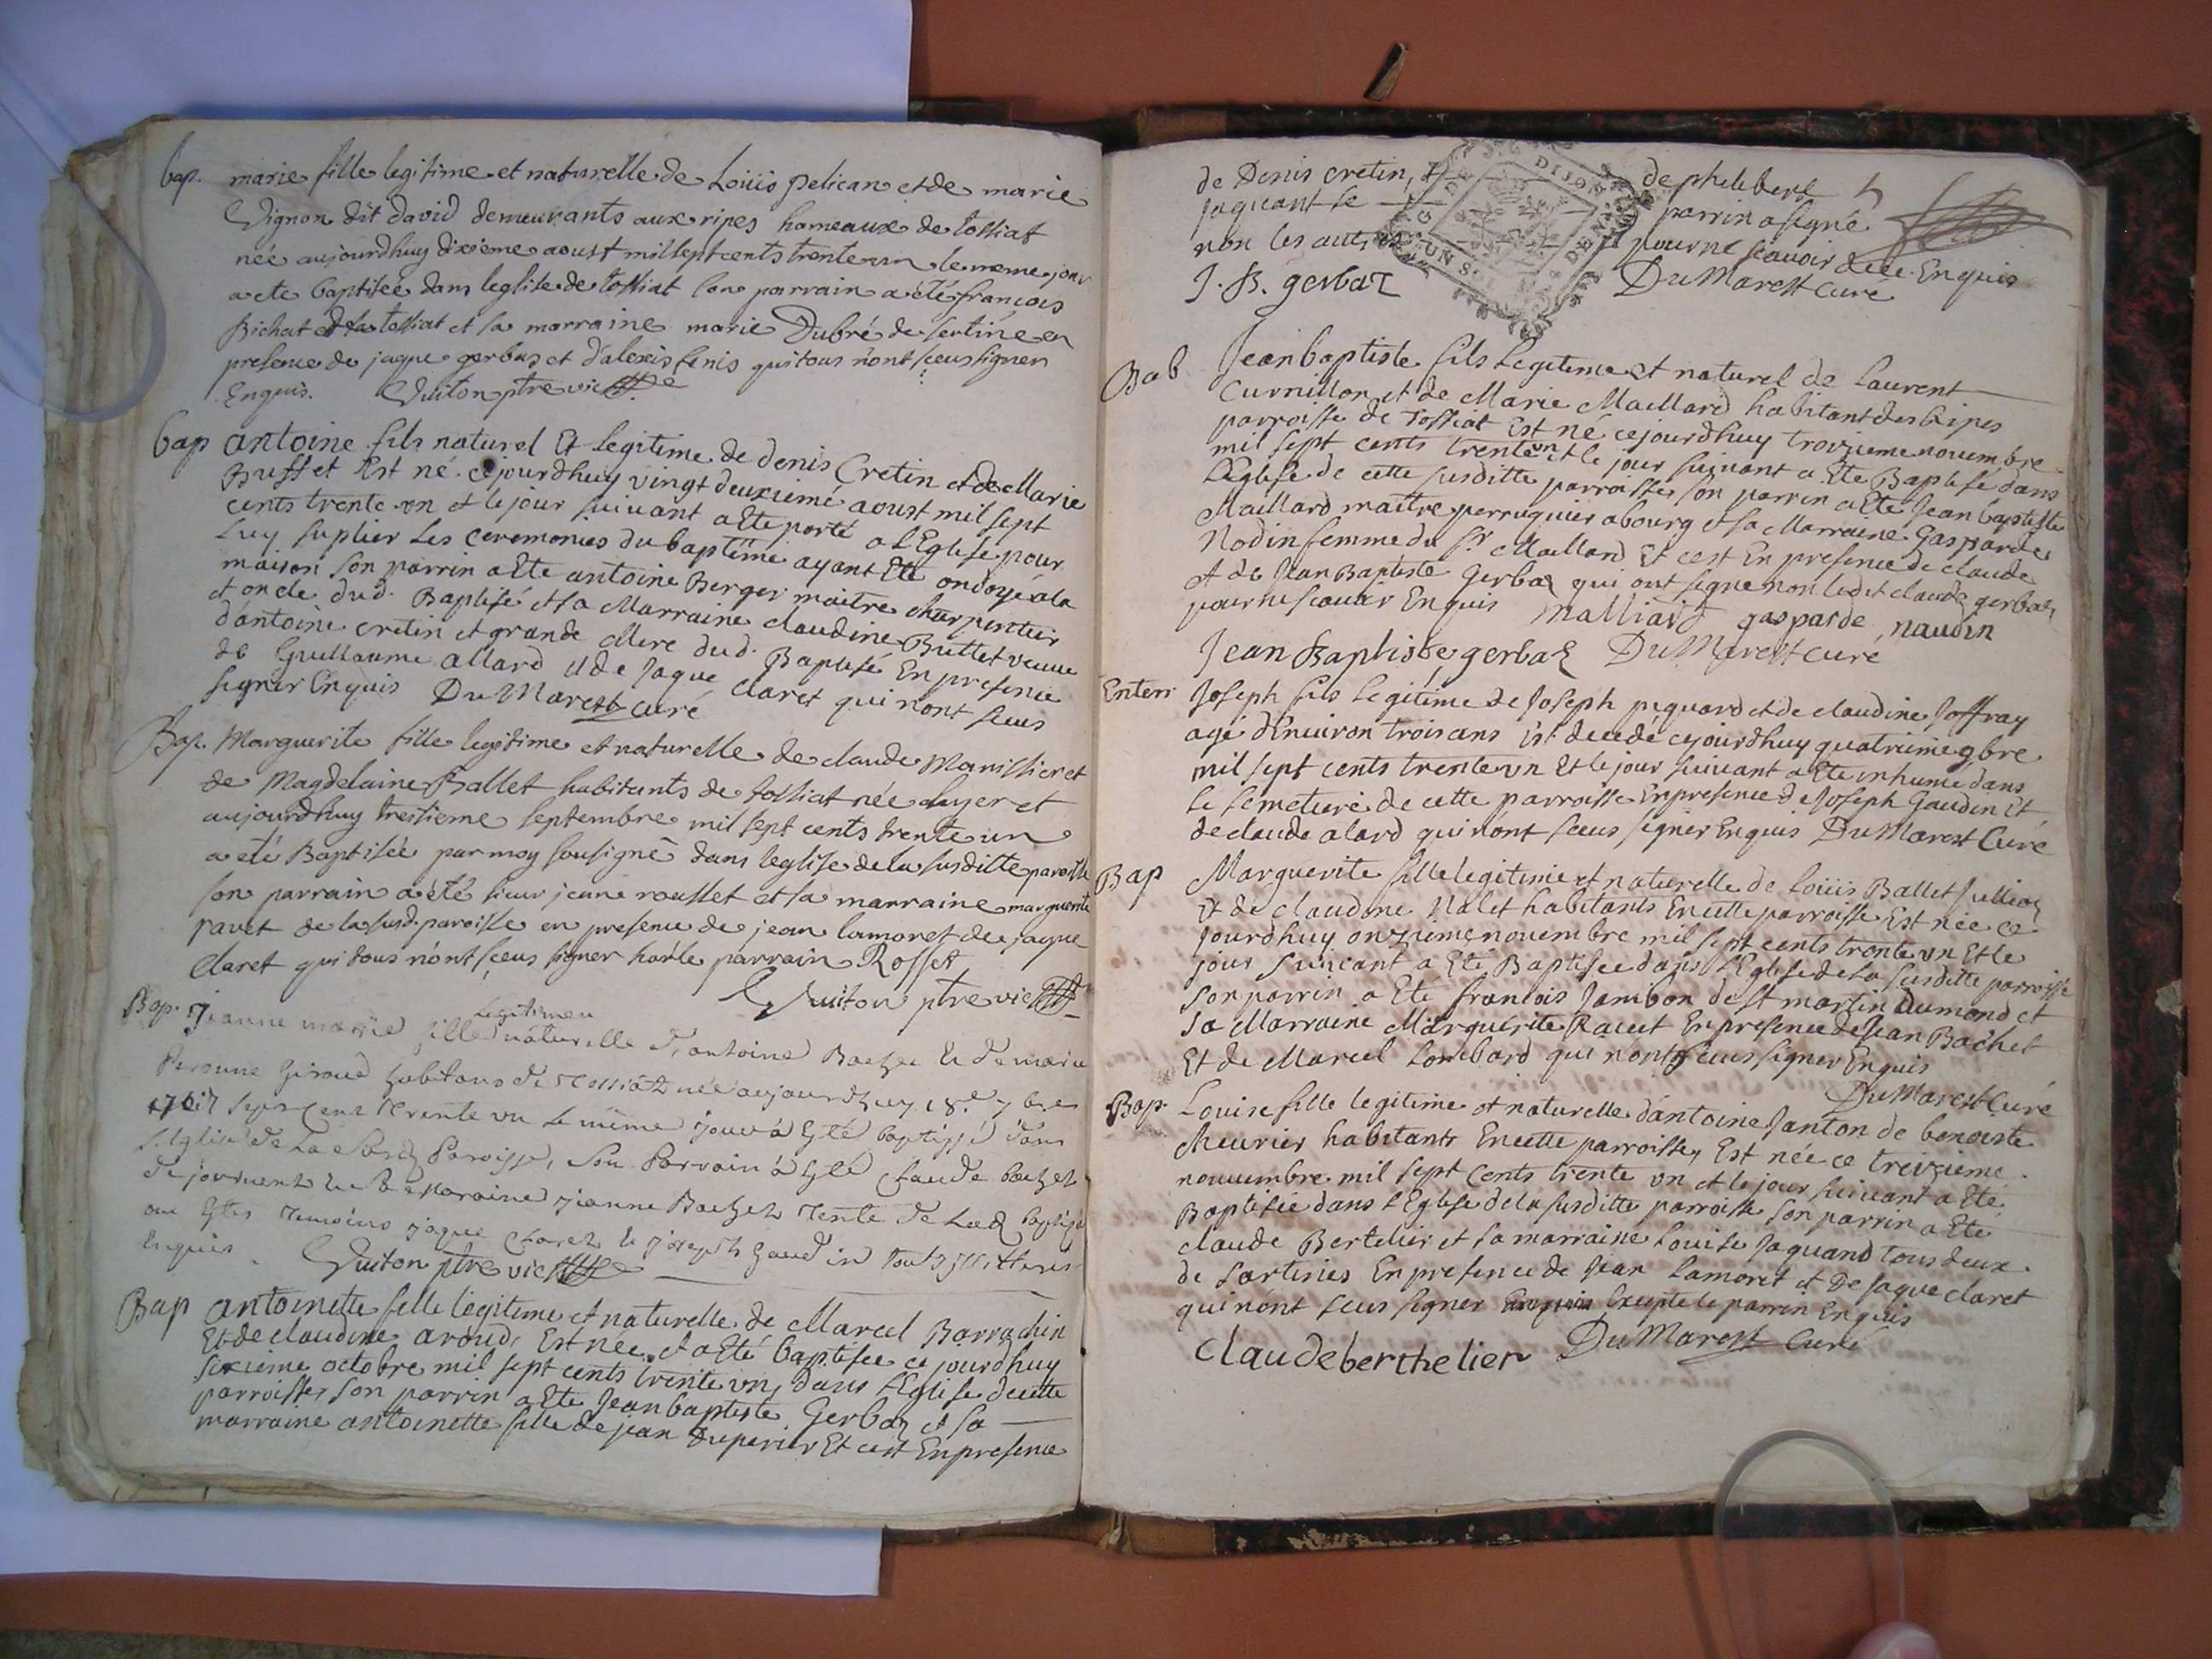 bap. marie fille legitime et naturelle de Loüis pelican et de marie
Vignon dit david demeurants aux ripes hameaux de tossiat
née aujourdhuy dixieme aoust mil sept cents trente un le meme jour
a ete baptisée dans leglise de tossiat son parrain a été françois
Bichat de tossiat et sa marraine marie Dubré de sertine en
presence de jaque gerbaz et d'alexis fenis qui tous n'ont sceu signer
Enquis. Vuiton ptre vic
bap antoine fils naturel Et legitime de denis Cretin et de Marie
Buffet Est né cejourdhuy vingt deuxieme aoust mil sept
cents trente un et le jour suivant a Ete porté a l'Eglise pour
Luy suplier Les ceremonies du baptême ayant Eté ondoyé a la
maison Son parrin a Ete antoine Berger maitre charpentier
et oncle dud. Baptisé et sa Marraine claudine Buttet veuve
d'antoine cretin et grande Mere dud. Baptisé En presence
de Guillaume allard et de Jaque claret qui n'ont sceus
signer Enquis DuMarest curé
Bap. Marguerite fille legitime et naturelle de claude Manissier et
de Magdelaine Ballet habitants de tossiat née
aujourdhuy treisieme septembre mil sept cents trente un
a eté Baptisée par moy sousigné dans leglise de la susditte paroisse
son parrain a été sieur jeune rousset et sa marraine marguerite
ravet de la susd. paroisse en presence de jean lamoret de jaque
Claret qui tous n'ont sceus signer hor le parrain Rosset
Vuiton ptre vic
Bap. Jeanne marie fille legitime naturelle d'antoine Bachet et de marie
Peronne Giroud habitans de Tossiat née aujourdhuy 18e 7bre
mil sept cent trente un le même jour a Eté baptissé dans
l'Eglise de La Paroisse, son Parrain a Eté claude bachet
de journent et sa Maraine jeanne Bachet tente de Lad baptisé
ont Etes temoins jaque claret et joseph gaud in touts
Enquis. Vuiton ptre vic
Bap antoinette fille legitime et naturelle de Marcel Barrachin
Et de claudine aroud, Est née et a Eté baptisée ce jourdhuy
sixieme octobre mil sept cents trente un, dans l'Eglise de cette
parroisse, son parrin a Ete Jean baptiste Gerbaz et sa
marraine antoinette fille de jean Duperier Et c'est En presence
de Denis cretin, de philebert
jaquant le parrin a signé
non les autres pour ne scavoir Enquis
J. B. gerbaz DuMarest curé
DIJON
Bab Jean baptiste fils Legitime et naturel de Laurent
Curnillon et de Marie Maillard habitant des Ripes
parroisse de Tossiat Est né cejourdhuy troizieme novembre
mil sept cents trente un et le jour suivant a Ete Baptisé dans
L'eglise de cette susditte parroisse, son parrin a Ete Jean baptiste
Maillard maitre perruquier a bourg et sa Marraine Gasparde
Nodin femme du Sr Maillard Et c'est En presence de claude
et de Jean Baptiste Gerbaz qui ont signe non ledit claude gerbaz
pour ne scavoir Enquis Malliard gasparde naudin
Jean Baptiste gerbaz DuMarest curé
Enterr Joseph fils Legitime de Joseph piquard et de claudine Joffray
agé d'Environ trois ans est decedé cejourdhuy quatrieme 9bre
mil sept cents trente un Et le jour suivant a Ete inhumé dans
le semetiere de cette parroisse En presence de Joseph Gaudin Et
de claude alard qui n'ont sceus signer Enquis DuMarest Curé
Bap Marguerite fille legitime et naturelle de Loüis Ballet Jullion
et de claudine Nalet habitants En cette parroisse, Est née ce
jourdhuy onzieme novembre mil sept cents trente un Et le
jour suivant a Eté Baptisée dans l'Eglise de La susditte parroisse
son parrin a Ete francois Jambon de St martin dumond et
sa Marraine Marguerite Ravet En presence de Jean Bachet
Et de Marcel Lombard qui n'ont sceus signer Enquis
DuMarest Curé
Bap. Louise fille legitime et naturelle d'antoine Janton de benoiste
Meurier habitants En cette parroisse, Est née ce treizieme
novembre mil sept cents trente un et le jour suivant a Eté
Baptisée dans l'Eglise de la susditte parroisse son parrin a Ete
claude Bertelier et sa marraine Louise Jaquand tous deux
de sartines En presence de Jean Lamoret et de Jaque claret
qui n'ont sceus signer Excepte le parrin Enquis
Claude berthelier DuMarest Curé